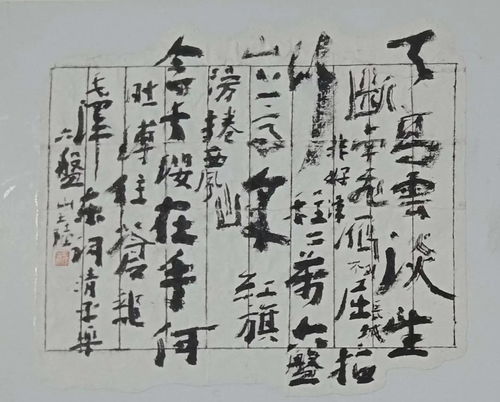 天高雲淡望
斷南飛雁不到長城
非好漢屈指
行程二萬六盤
山上高峰紅旗
漫捲西風
今日長纓在手何
時縛住蒼龍
毛澤東詞清平樂
六盤山